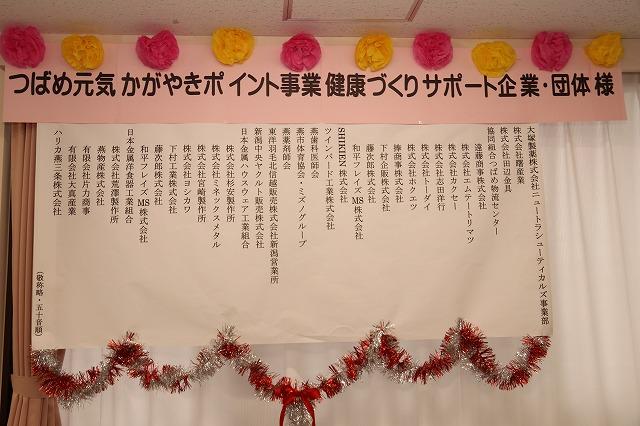 つばめ元気かがやきポイント事業健康づくりサポート企業・団体様
大塚製薬株式会社ニュートラシューティカルズ事業部
株式会社曙産業
株式会社田辺金具
協同組合つばめ物流センター
遠藤商事株式会社
株式会社エムテートリマツ
株式会社カクセー
株式会社志田洋行
株式会社トーダイ
株式会社ホクエツ
捧商事株式会社
下村企販株式会社
藤次郎株式会社
和平フレイズMS株式会社
SHIKIEN株式会社
ツインバード工業株式会社
燕歯科医師会
燕市体育協会・ミズノグループ
燕薬剤師会
東洋羽毛北信越販売株式会社新潟営業所
新潟中央ヤクルト販売株式会社
日本金属ハウスウェア工業組合
株式会社杉安製作所
株式会社ミネックスメタル
株式会社宮﨑製作所
株式会社ヨシカワ
下村工業株式会社
藤次郎株式会社
和平フレイズMS株式会社
日本金属洋食器工業組合
株式会社荒澤製作所
燕物産株式会社
有限会社片力商事
有限会社大真産業
ハリカ燕三条株式会社
（敬称略・五十音順）